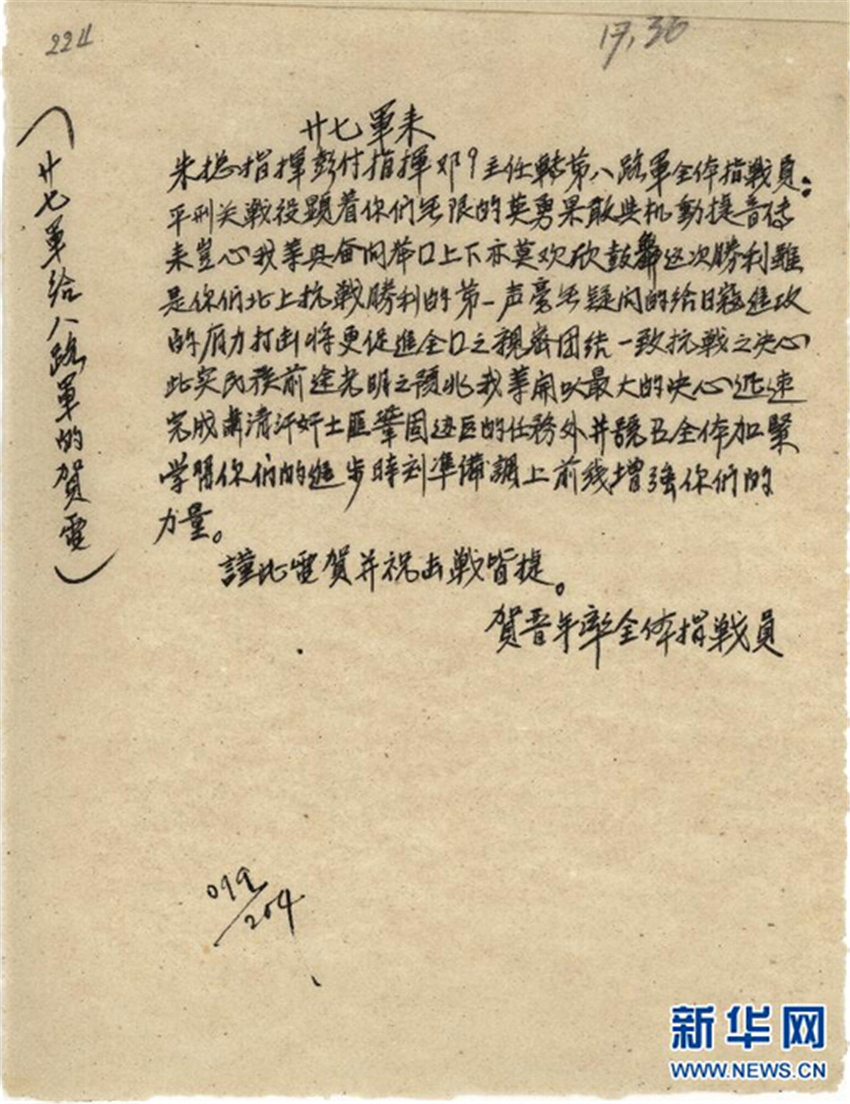 2211
17,36
(廿七軍给八路軍的賀電)
廿七軍来
朱总指揮彭付指揮邓 主任轉第八路軍全体指戰員:
平刑关戰役顕着你們无限的英勇果敢与机動捷音传
来 心我等与奋同举口上下亦莫欢欣鼓舞这次勝利雖
是你們北上抗戰勝利的第一声毫无疑问的给日寇進攻
的有力打击将更促進全口之親密团结一致抗戰之决心
此实民族前途光明之预兆我等開以最大的决心迅速
完成肃清汗奸土匪鞏固边区的任務外并 全体加緊
学習你們的進步時刻準備調上前线增強你們的
力量。
謹此電賀并祝击戰皆捷。
賀晋年率全体指戰員
099/204
新华网
WWW.NEWS.CN